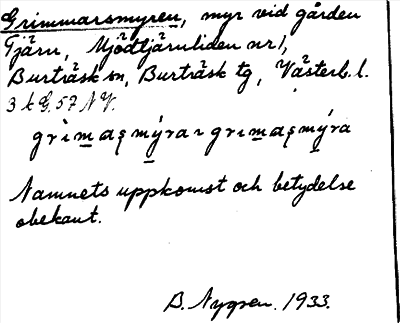 Grimmarsmyren, myr vid gården
Tjärn, Mjödtjärnliden nr 1,
Burträsk sn, Burträsk tg, Västerb. l.
3 k G. 57 NV.
grìmaʂmýrar grimaʂmýra
Namnets uppkomst och betydelse
obekant.
B. Nygren. 1933.